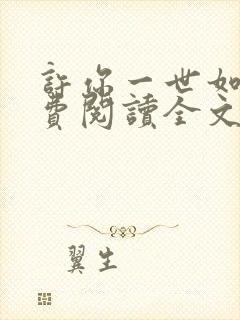 許你一世如
費閱讀全文
翼生